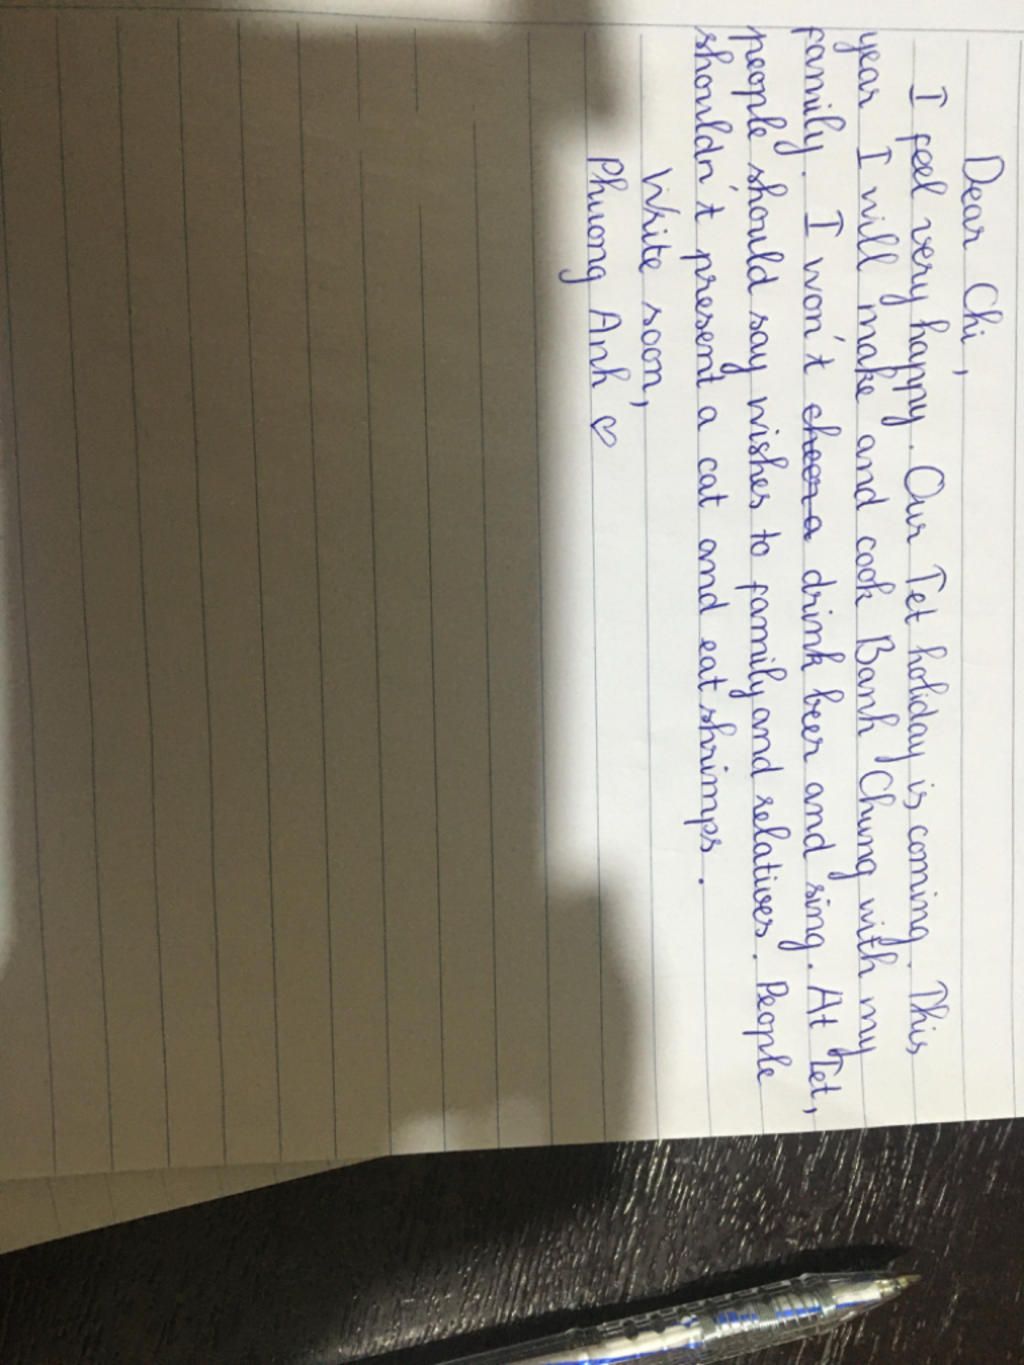 Dear Chi,
I feel very happy. Our Tet holiday is coming. This
year I will make and cook Banh Chung with my
family. I won't drink beer and sing. At Tet,
people should say wishes to family and relatives. People
shouldn't present a cat and eat shrimps.
Write soon,
Phuong Anh ♡